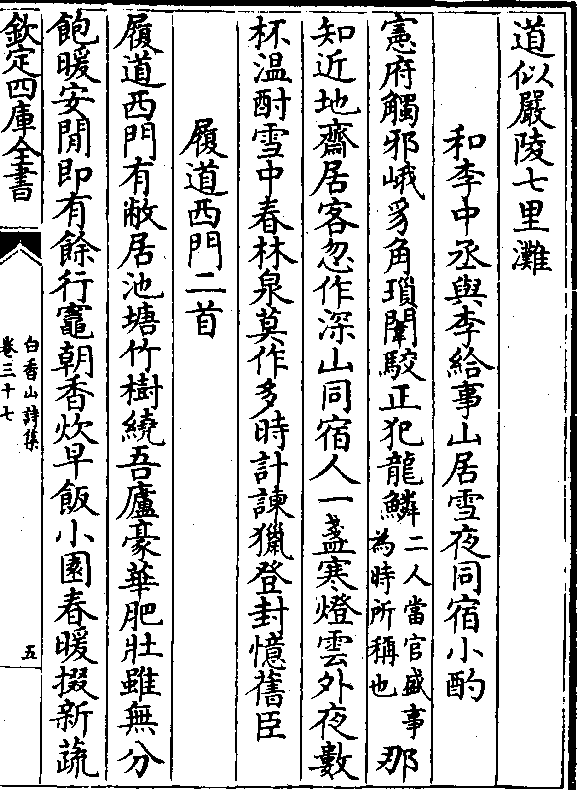 道似嚴陵七里灘
和李中丞與李給事山居雪夜同宿小酌
憲府觸邪峨豸角瑣闈駮正犯龍鱗二人當官盛事為時所稱也那
知近地齋居客忽作深山同宿人一盞寒燈雲外夜數
杯温酎雪中春林泉莫作多時計諫獵登封憶舊臣
履道西門二首
履道西門有敝居池塘竹樹繞吾廬豪華肥壯雖無分
飽暖安閒即有餘行竈朝香炊早飯小園春暖掇新蔬
欽定四庫全書
白香山詩集
卷三十七
五